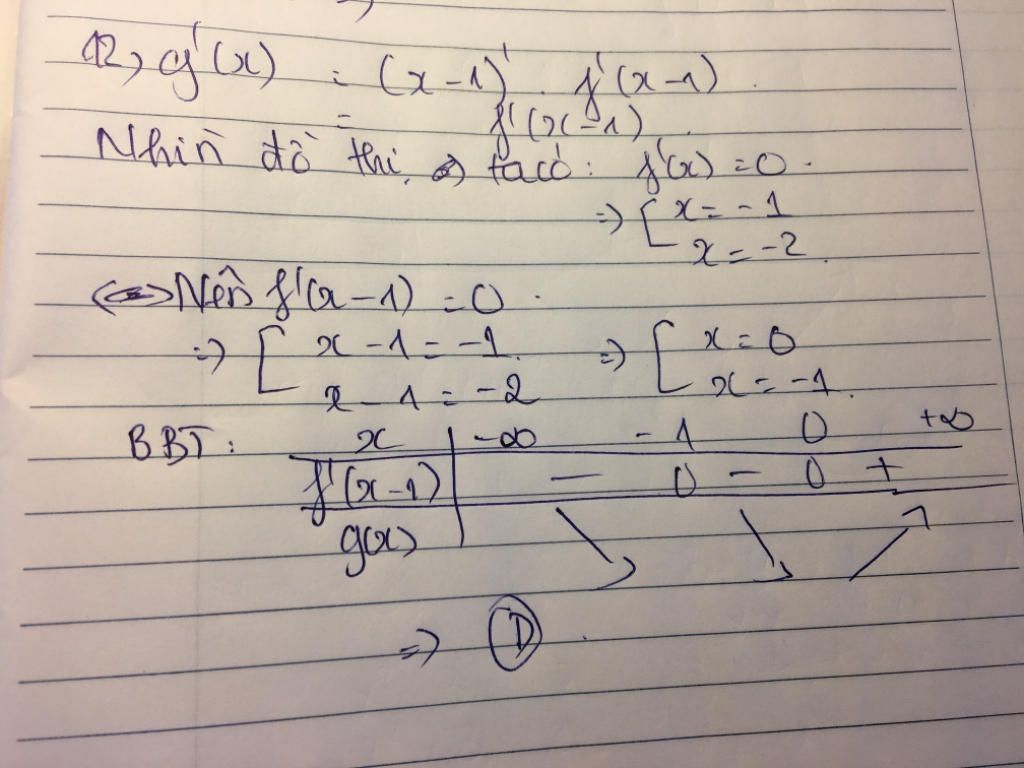 12, g'(x) = (x-1)' . f'(x-1).
= f'(x-1).
Nhìn đồ thị, => ta có: f'(x) = 0.
=> [ x = -1
x = -2.
<=> Nên f'(x-1) = 0.
=> [ x - 1 = -1. => [ x = 0
x - 1 = -2 x = -1.
BBT: x | -∞ -1 0 +∞
f'(x-1) | - 0 - 0 +
g(x) | ↘ ↘ ↗
=> D.